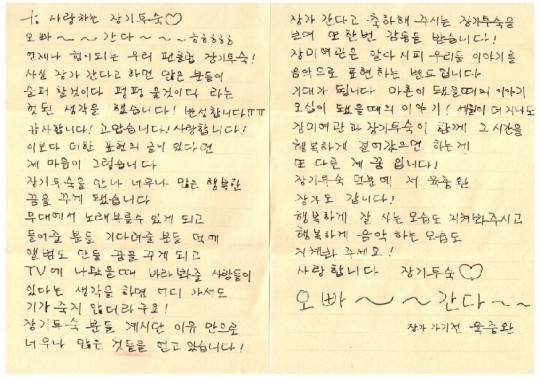 to 사랑하는 장기투숙♡
오빠~~간다~~ㅎㅎㅎㅎㅎ
언제나 힘이되는 우리 팬클럽 장기투숙!
사실 장가 간다고 하면 많은 분들이
슬퍼 할것이다 펑펑 울것이다 라는
헛된 생각을 했습니다! 반성합니다ㅠㅠ
감사합니다! 고맙습니다! 사랑합니다!
이보다 더한 표현의 글이 있다면
제 마음이 그렇습니다
장기투숙을 만나 너무나 많은 행복한
꿈을 꾸게 됐습니다
무대에서 노래부를수 있게 되고
들어줄 분들 기다려줄분들 덕에
앨범도 만들 꿈을 꾸게 되고
TV에 나왔을때 바라봐줄 사람들이
있다는 생각을 하면 어디 가서도
기가 죽지 않더라구요!
장기투숙 분들 계시단 이유 만으로
너무나 많은 것들을 얻고 있습니다!
장가 간다고 축하해 주시는 장기투숙을
보며 또 한번 감동을 받습니다!
장미여관은 알다시피 우리들 이야기를
음악으로 표현하는 밴드입니다
기대가 됩니다 마흔이 됐을때의 이야기
오십이 됐을때의 이야기! 세월이 더 지나도
장미여관과 장기투숙이 함께 그 시간을
행복하게 걸어갔으면 하는게
또 다른 제 꿈 입니다!
장기투숙 덕분에 저 육중완
장가도 갑니다!
행복하게 잘 사는 모습도 지켜봐주시고
행복하게 음악 하는 모습도
지켜봐 주세요!
사랑합니다 장기투숙♡
오빠~~간다~~
장가 가기전 육중완